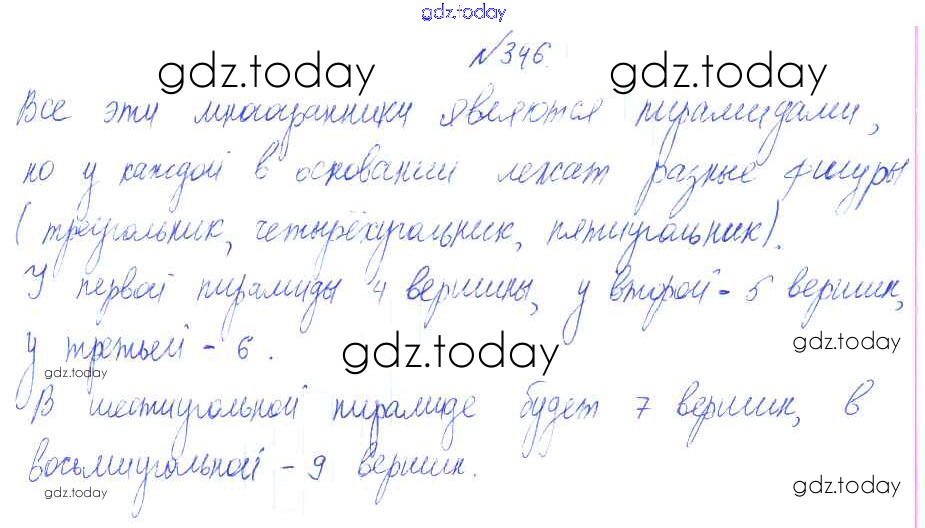 gdz.today
№346.
gdz.today gdz.today
Все эти многогранники являются пирамидами,
но у каждой в основании лежат разные фигуры
(треугольник, четырёхугольник, пятиугольник).
У первой пирамиды 4 вершины, у второй - 5 вершин,
у третьей - 6.
gdz.today gdz.today
gdz.today
В шестиугольной пирамиде будет 7 вершин, в
восьмиугольной - 9 вершин.
gdz.today gdz.today